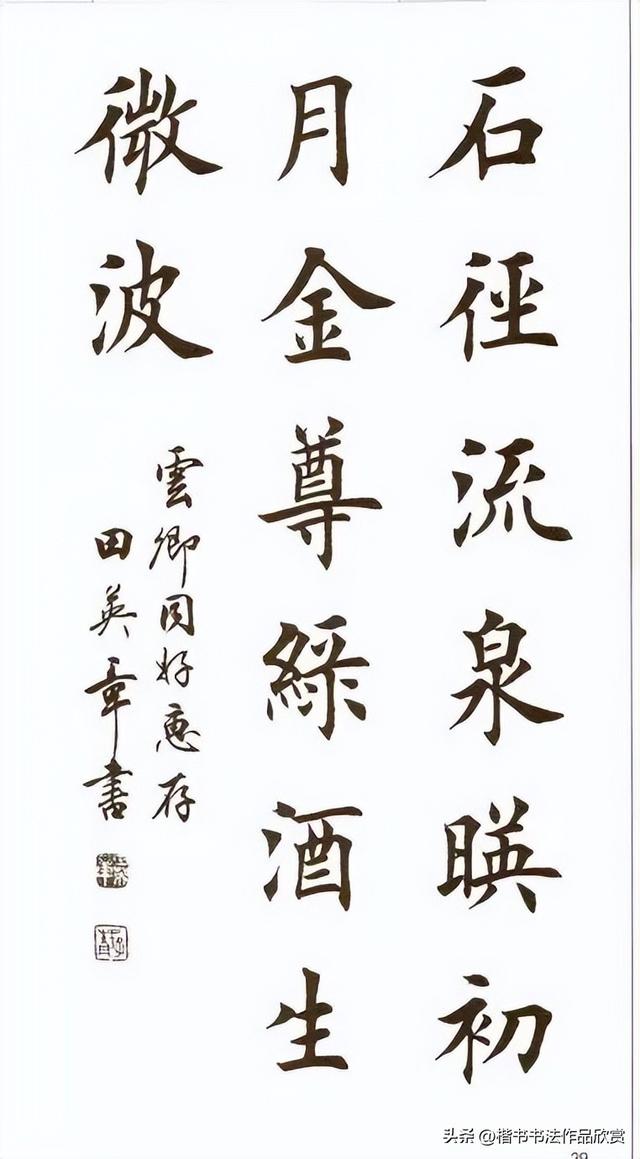 石徑流泉暎初
月金尊綠酒生
微波
雲卿同好惠存
田英章書
头条@楷书书法作品欣赏
39